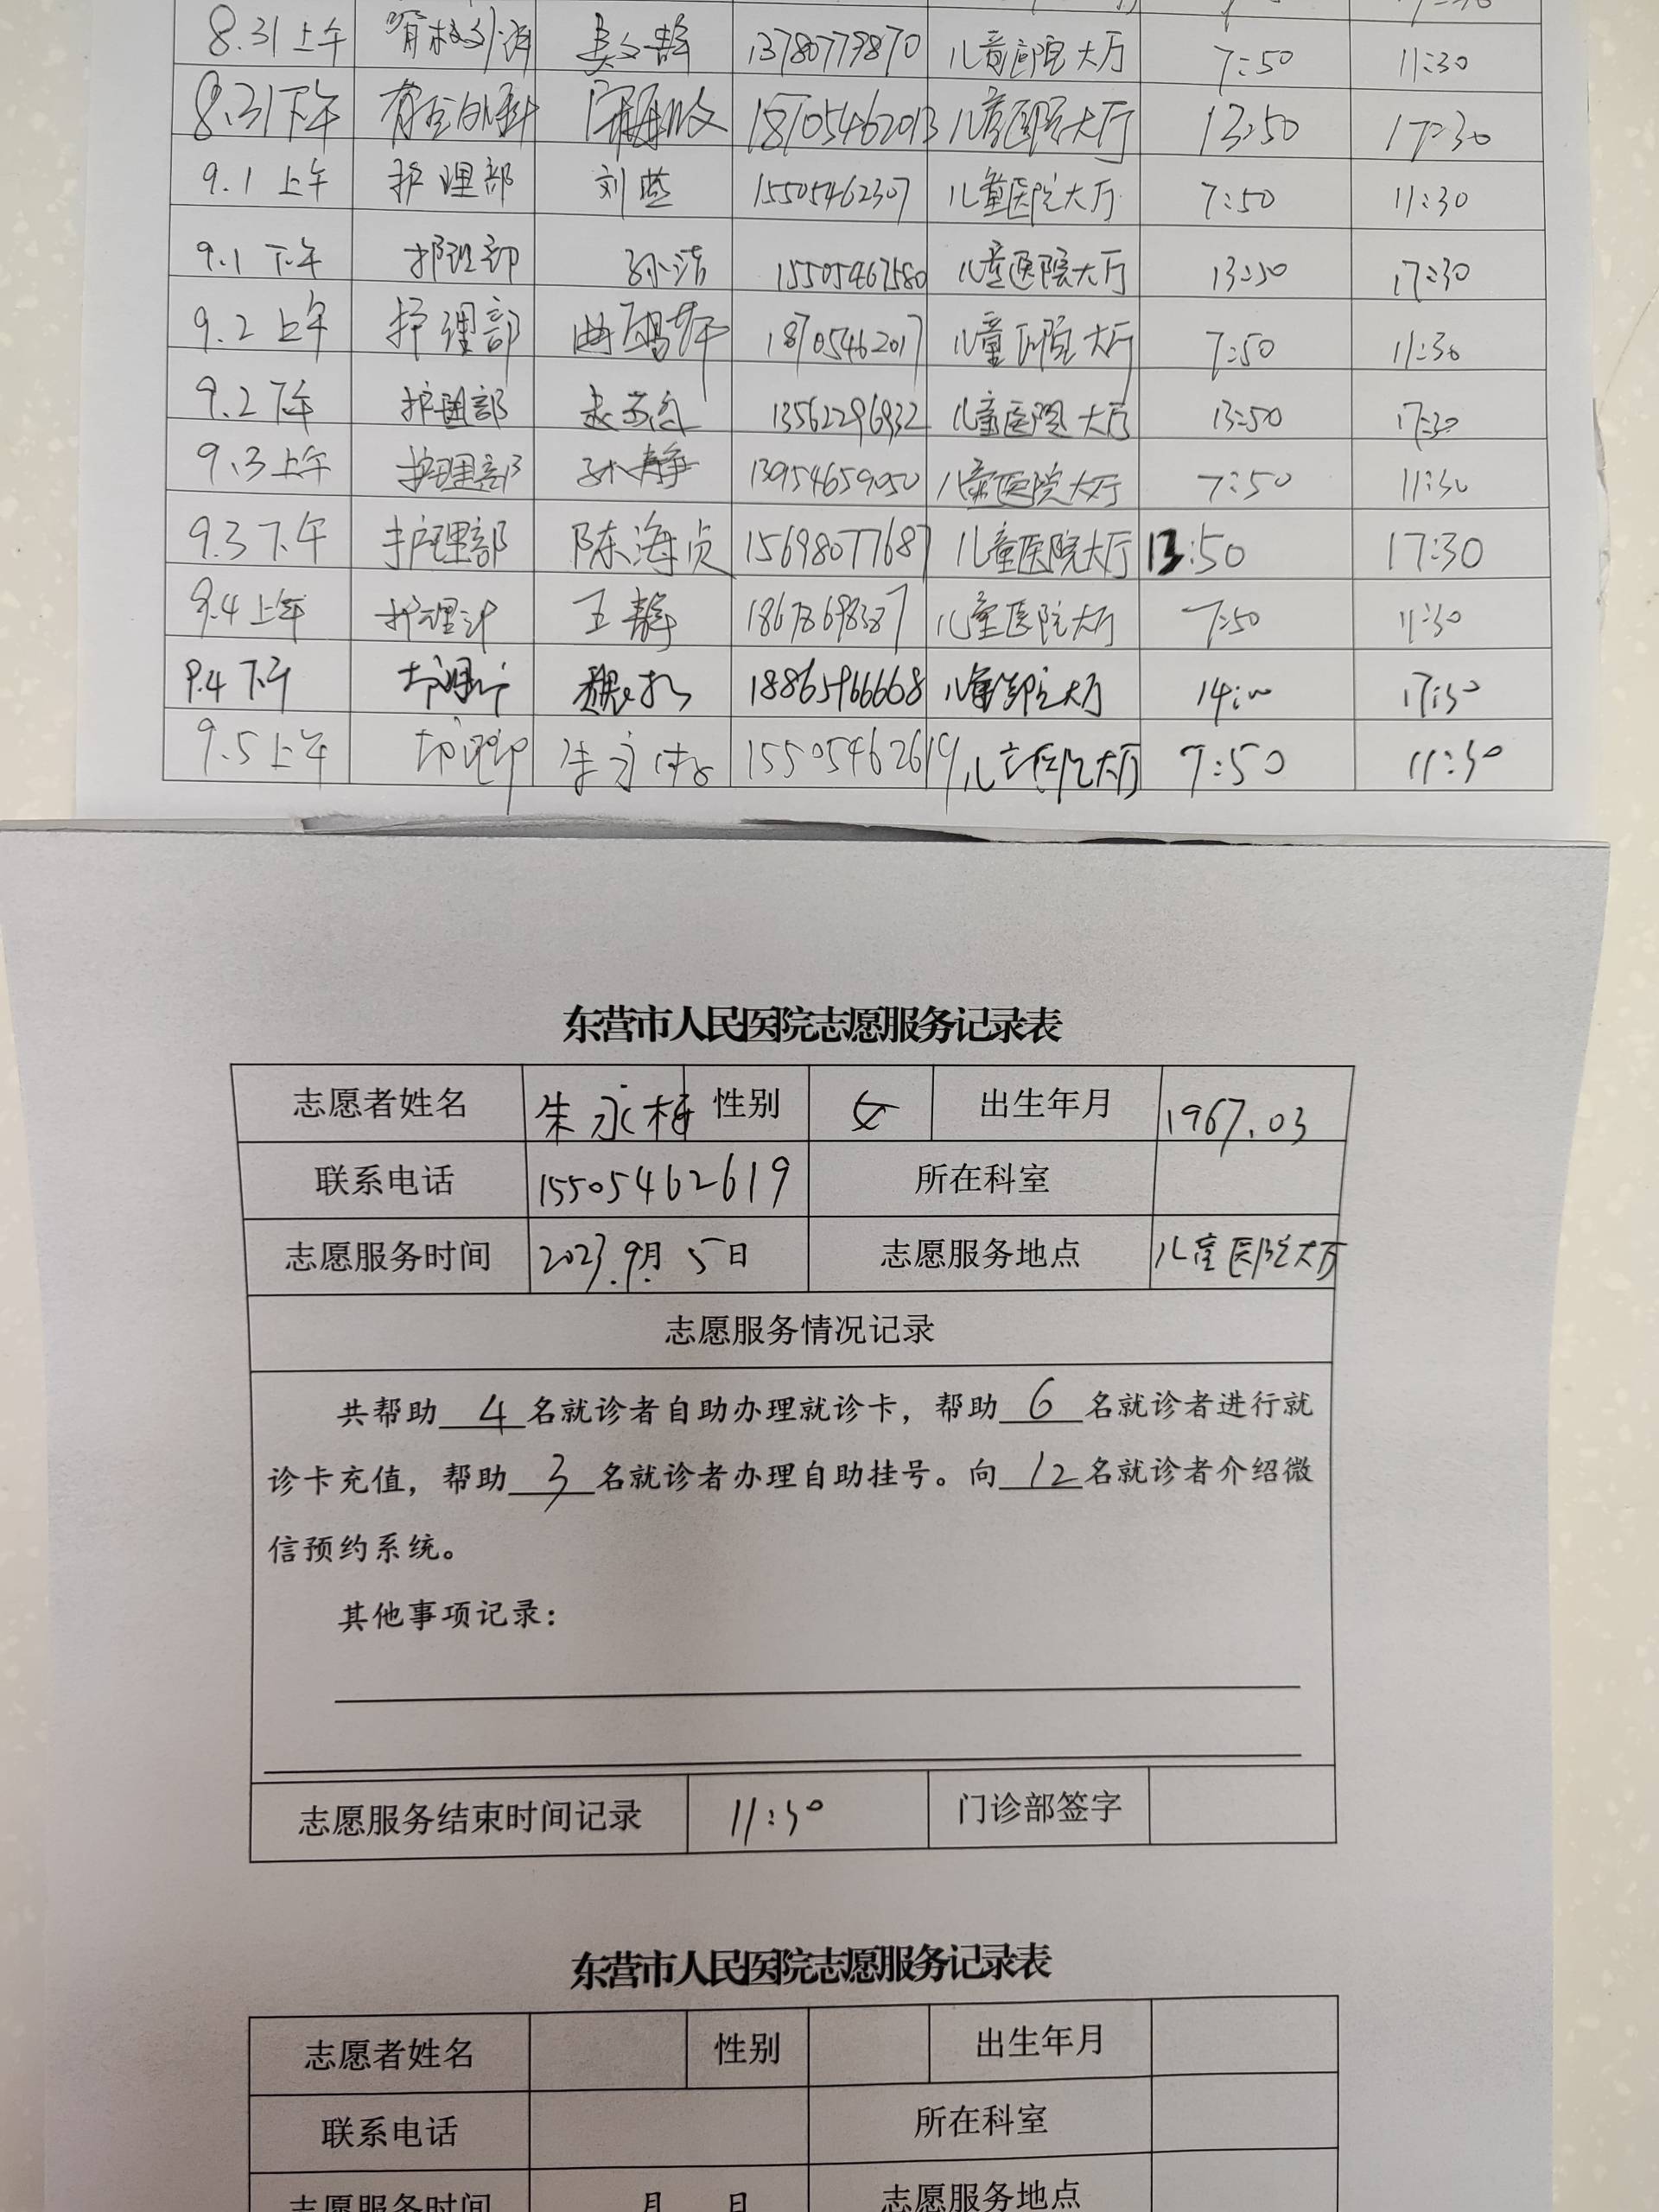 8.31 上午 吴文静 13780779870 儿童医院大厅 7:50 11:30
8.31 下午 18705462013 儿童医院大厅 13:50 17:30
9.1 上午 护理部 刘燕 15505462307 儿童医院大厅 7:50 11:30
9.1 下午 护理部 孙洁 15505467580 儿童医院大厅 13:50 17:30
9.2 上午 护理部 18705462017 儿童医院大厅 7:50 11:30
9.2 下午 护理部 13562296932 儿童医院大厅 13:50 17:30
9.3 上午 护理部 孙静 13954659050 儿童医院大厅 7:50 11:30
9.3 下午 护理部 陈海贞 15698077687 儿童医院大厅 13:50 17:30
9.4 上午 护理部 王静 儿童医院大厅 7:50 11:30
9.4 下午 护理部 18865966668 儿童医院大厅 14:00 17:30
9.5 上午 护理部 朱永梅 15505462619 儿童医院大厅 7:50 11:30
东营市人民医院志愿服务记录表
志愿者姓名 朱永梅 性别 女 出生年月 1967.03
联系电话 15505462619 所在科室
志愿服务时间 2023.9月5日 志愿服务地点 儿童医院大厅
志愿服务情况记录
共帮助 4 名就诊者自助办理就诊卡，帮助 6 名就诊者进行就
诊卡充值，帮助 3 名就诊者办理自助挂号。向 12 名就诊者介绍微
信预约系统。
其他事项记录：
志愿服务结束时间记录 11:30 门诊部签字
东营市人民医院志愿服务记录表
志愿者姓名 性别 出生年月
联系电话 所在科室
志愿服务时间 月 日 志愿服务地点